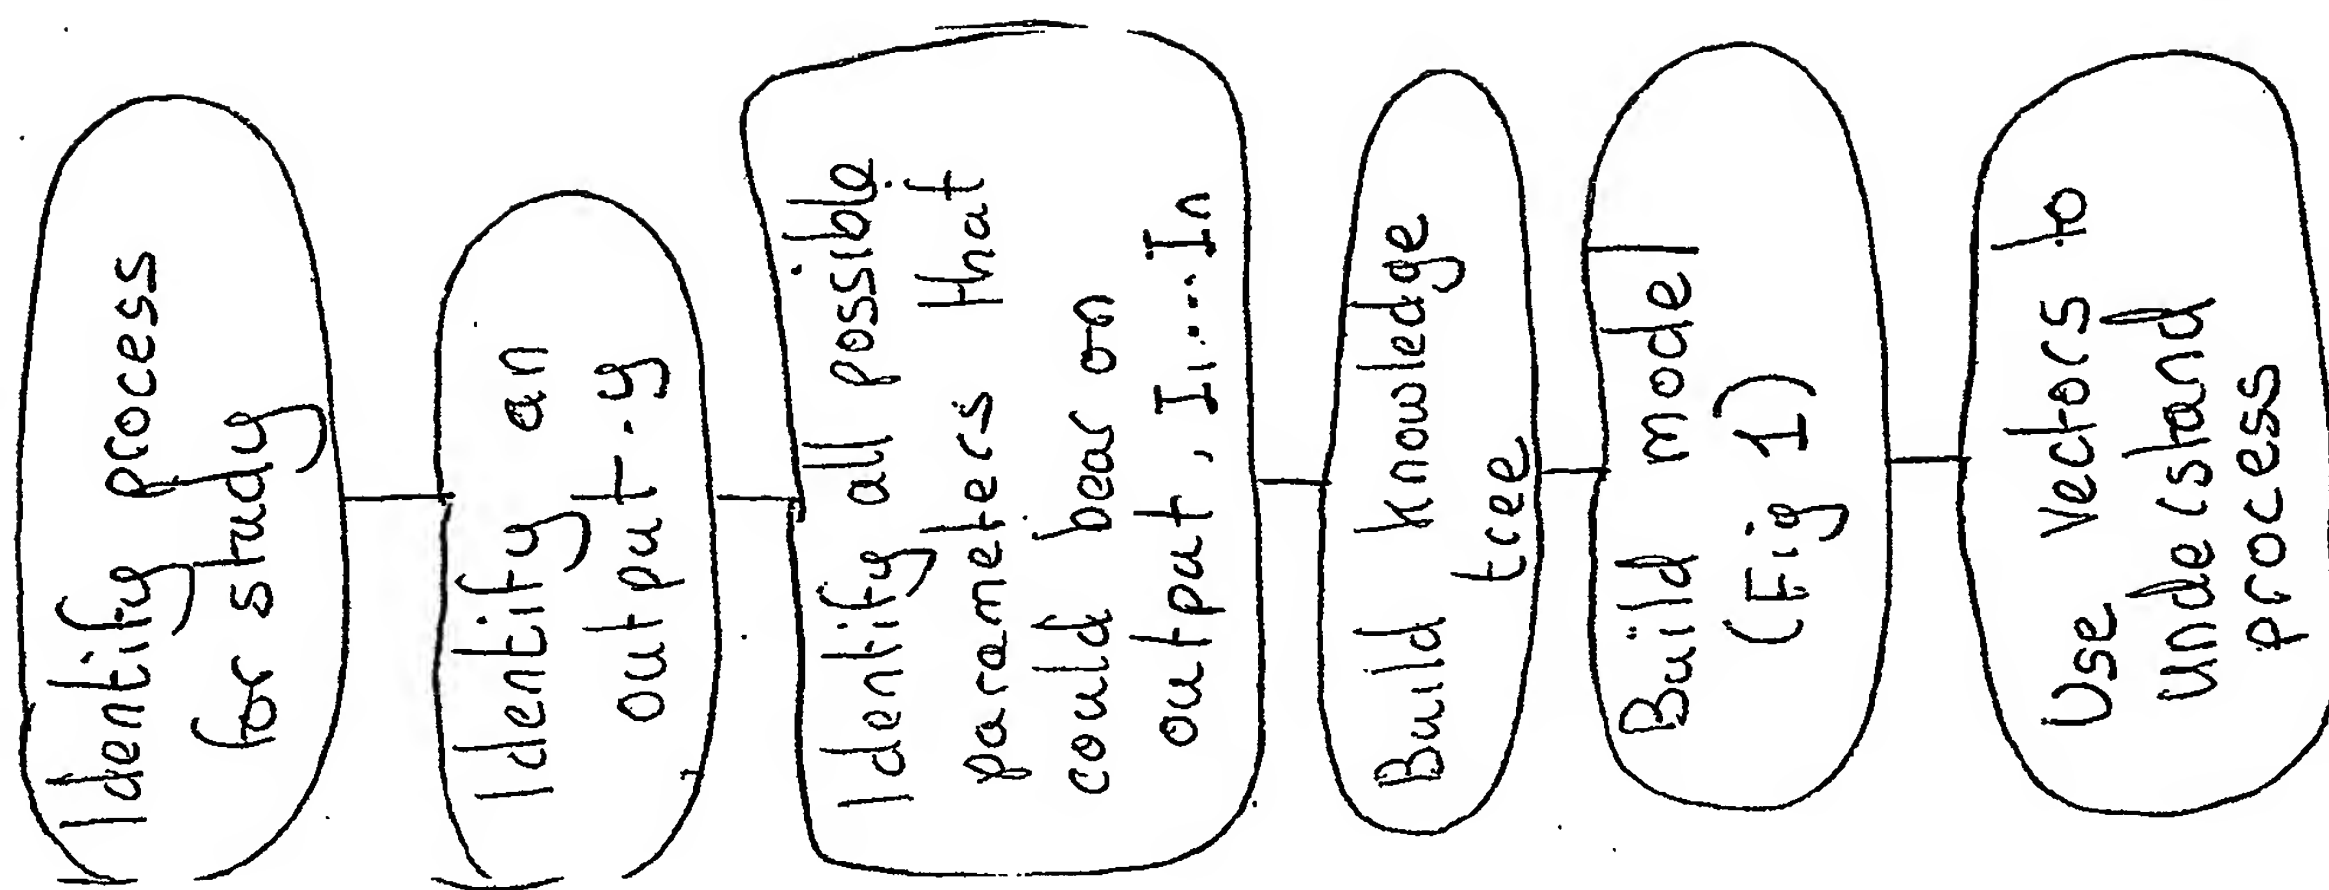 Identify process
for study
Identify an
output - y
Identify all possible
parameters that
could bear on
output, I1....In
Build knowledge
tree
Build model
(Fig 1)
Use Vectors to
understand
process